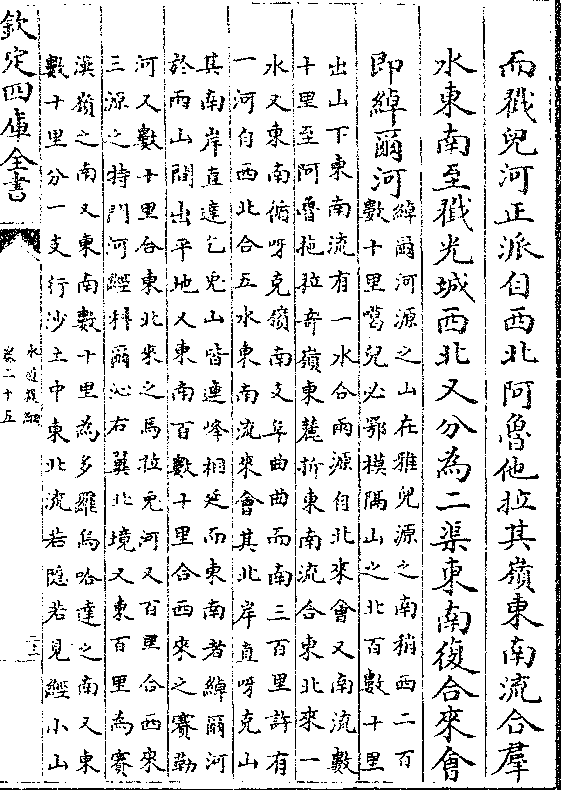 而戳兒河正派自西北阿魯他拉其嶺東南流合羣
水東南至戳光城西北又分為二渠東南復合來會
即綽爾河
綽爾河源之山在雅兒源之南稍西二百
數十里噶兒必鄂模隅山之北百數十里
出山下東南流有一水合兩源自北來會又南流數
十里至阿魯拖拉奇嶺東麓折東南流合東北來一
水又東南循呀克嶺南支阜曲曲而南三百里許有
一河自西北合五水東南流來會其北岸直呀克山
其南岸直達乞兎山皆連峰相延而東南者綽爾河
於兩山間出平地又東南百數十里合西來之賽勒
河又數十里合東北來之馬拉兎河又百里合西來
三源之特門河經科爾沁右翼北境又東百里為賽
漢嶺之南又東南數十里為多羅烏哈達之南又東
數十里分一支行沙土中東北流若隱若見經小山
欽定四庫全書
水道提綱
卷二十五